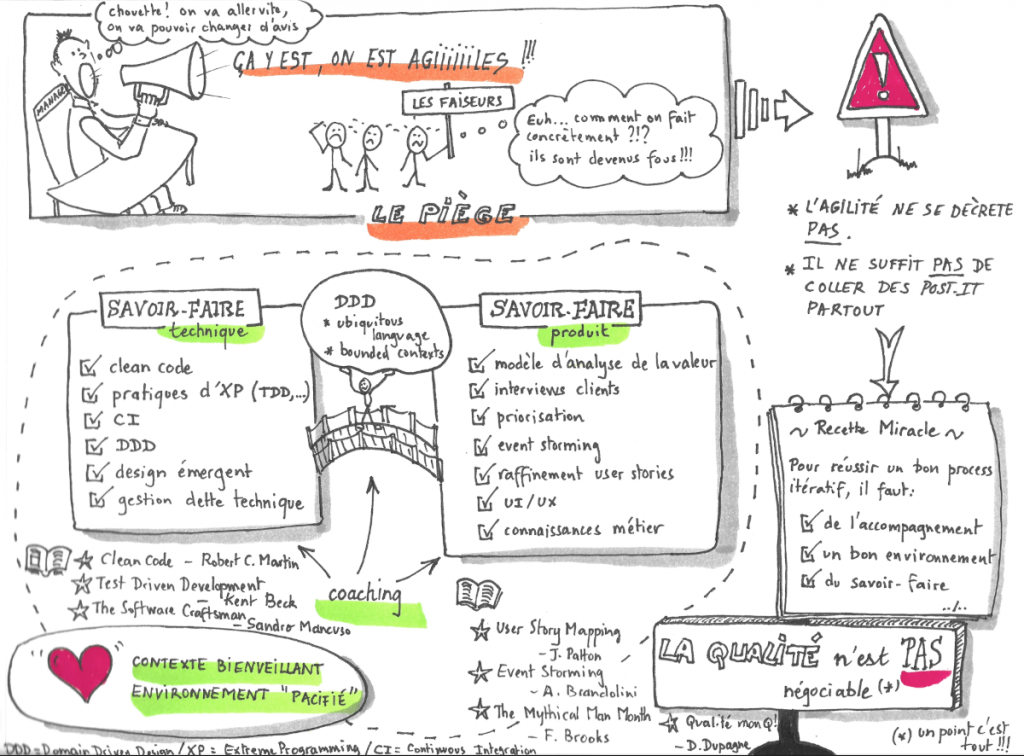 chouette! on va aller vite,
on va pouvoir changer d'avis
ÇA Y EST, ON EST AGiiiiiiLES !!!
MANAGER
LES FAISEURS
Euh... comment on fait
concrètement ?!?
ils sont devenus fous!!!
LE PiÈGE
!
* L'AGILITÉ NE SE DÉCRETE
PAS.
* IL NE SUFFIT PAS DE
COLLER DES POST-IT
PARTOUT
SAVOIR-FAIRE
technique
clean code
pratiques d'XP (TDD,...)
CI
DDD
design émergent
gestion dette technique
DDD
* ubiquitous
language
* bounded contexts
SAVOIR-FAIRE
produit
modèle d'analyse de la valeur
interviews clients
priorisation
event storming
raffinement user stories
UI/UX
connaissances métier
~ Recette Miracle ~
Pour réussir un bon process
itératif, il faut:
de l'accompagnement
un bon environnement
du savoir-faire
../..
Clean Code - Robert C. Martin
Test Driven Development
- Kent Beck
The Software Craftsman
- Sandro Mancuso
coaching
User Story Mapping
- J. Patton
Event Storming
- A. Brandolini
The Mythical Man Month
- F. Brooks
Qualité mon Q!
- D. Dupagne
LA QUALITÉ n'est PAS
négociable (*)
(*) un point c'est
tout !!!
CONTEXTE BIENVEILLANT
ENVIRONNEMENT "PACIFIÉ"
DDD = Domain Driven Design / XP = Extreme Programming / CI = Continuous Integration